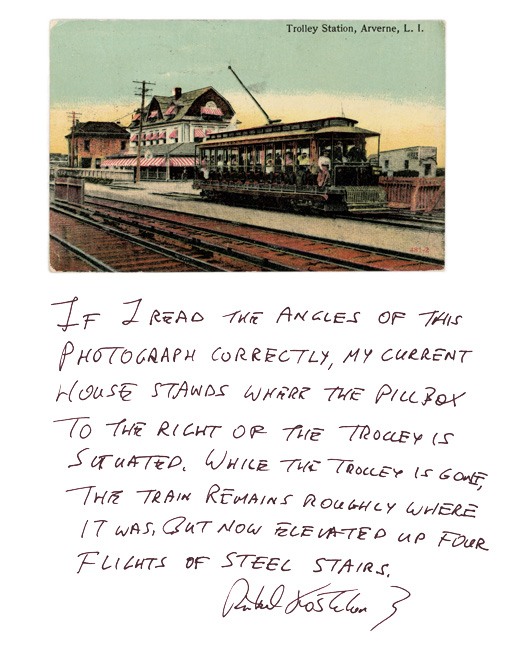 Trolley Station, Arverne, L. I.
IF I READ THE ANGLES OF THIS
PHOTOGRAPH CORRECTLY, MY CURRENT
HOUSE STANDS WHERE THE PILLBOX
TO THE RIGHT OF THE TROLLEY IS
SITUATED. WHILE THE TROLLEY IS GONE,
THE TRAIN REMAINS ROUGHLY WHERE
IT WAS, BUT NOW ELEVATED UP FOUR
FLIGHTS OF STEEL STAIRS.